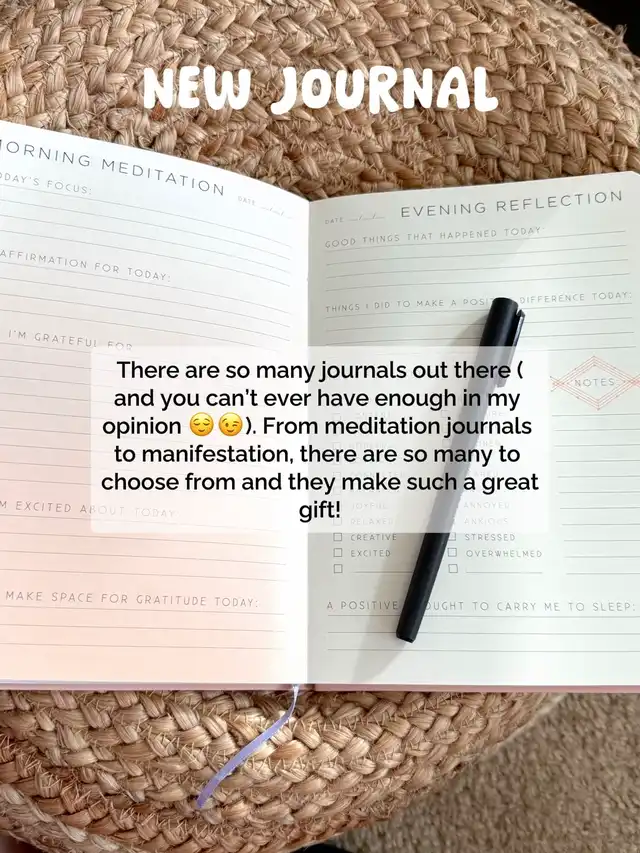 NEW JOURNAL
MORNING MEDITATION
TODAY'S FOCUS:
DATE
AFFIRMATION FOR TODAY:
I'M GRATEFUL FOR
M EXCITED ABOUT TODAY
MAKE SPACE FOR GRATITUDE TODAY:
DATE
EVENING REFLECTION
GOOD THINGS THAT HAPPENED TODAY
THINGS I DID TO MAKE A POSITIVE DIFFERENCE TODAY:
NOTES
There are so many journals out there (
and you can't ever have enough in my
opinion 😌😉). From meditation journals
to manifestation, there are so many to
choose from and they make such a great
gift!
JOYFUL
ANNOYED
RELAXED
ANXIOUS
CREATIVE
STRESSED
EXCITED
OVERWHELMED
A POSITIVE THOUGHT TO CARRY ME TO SLEEP: